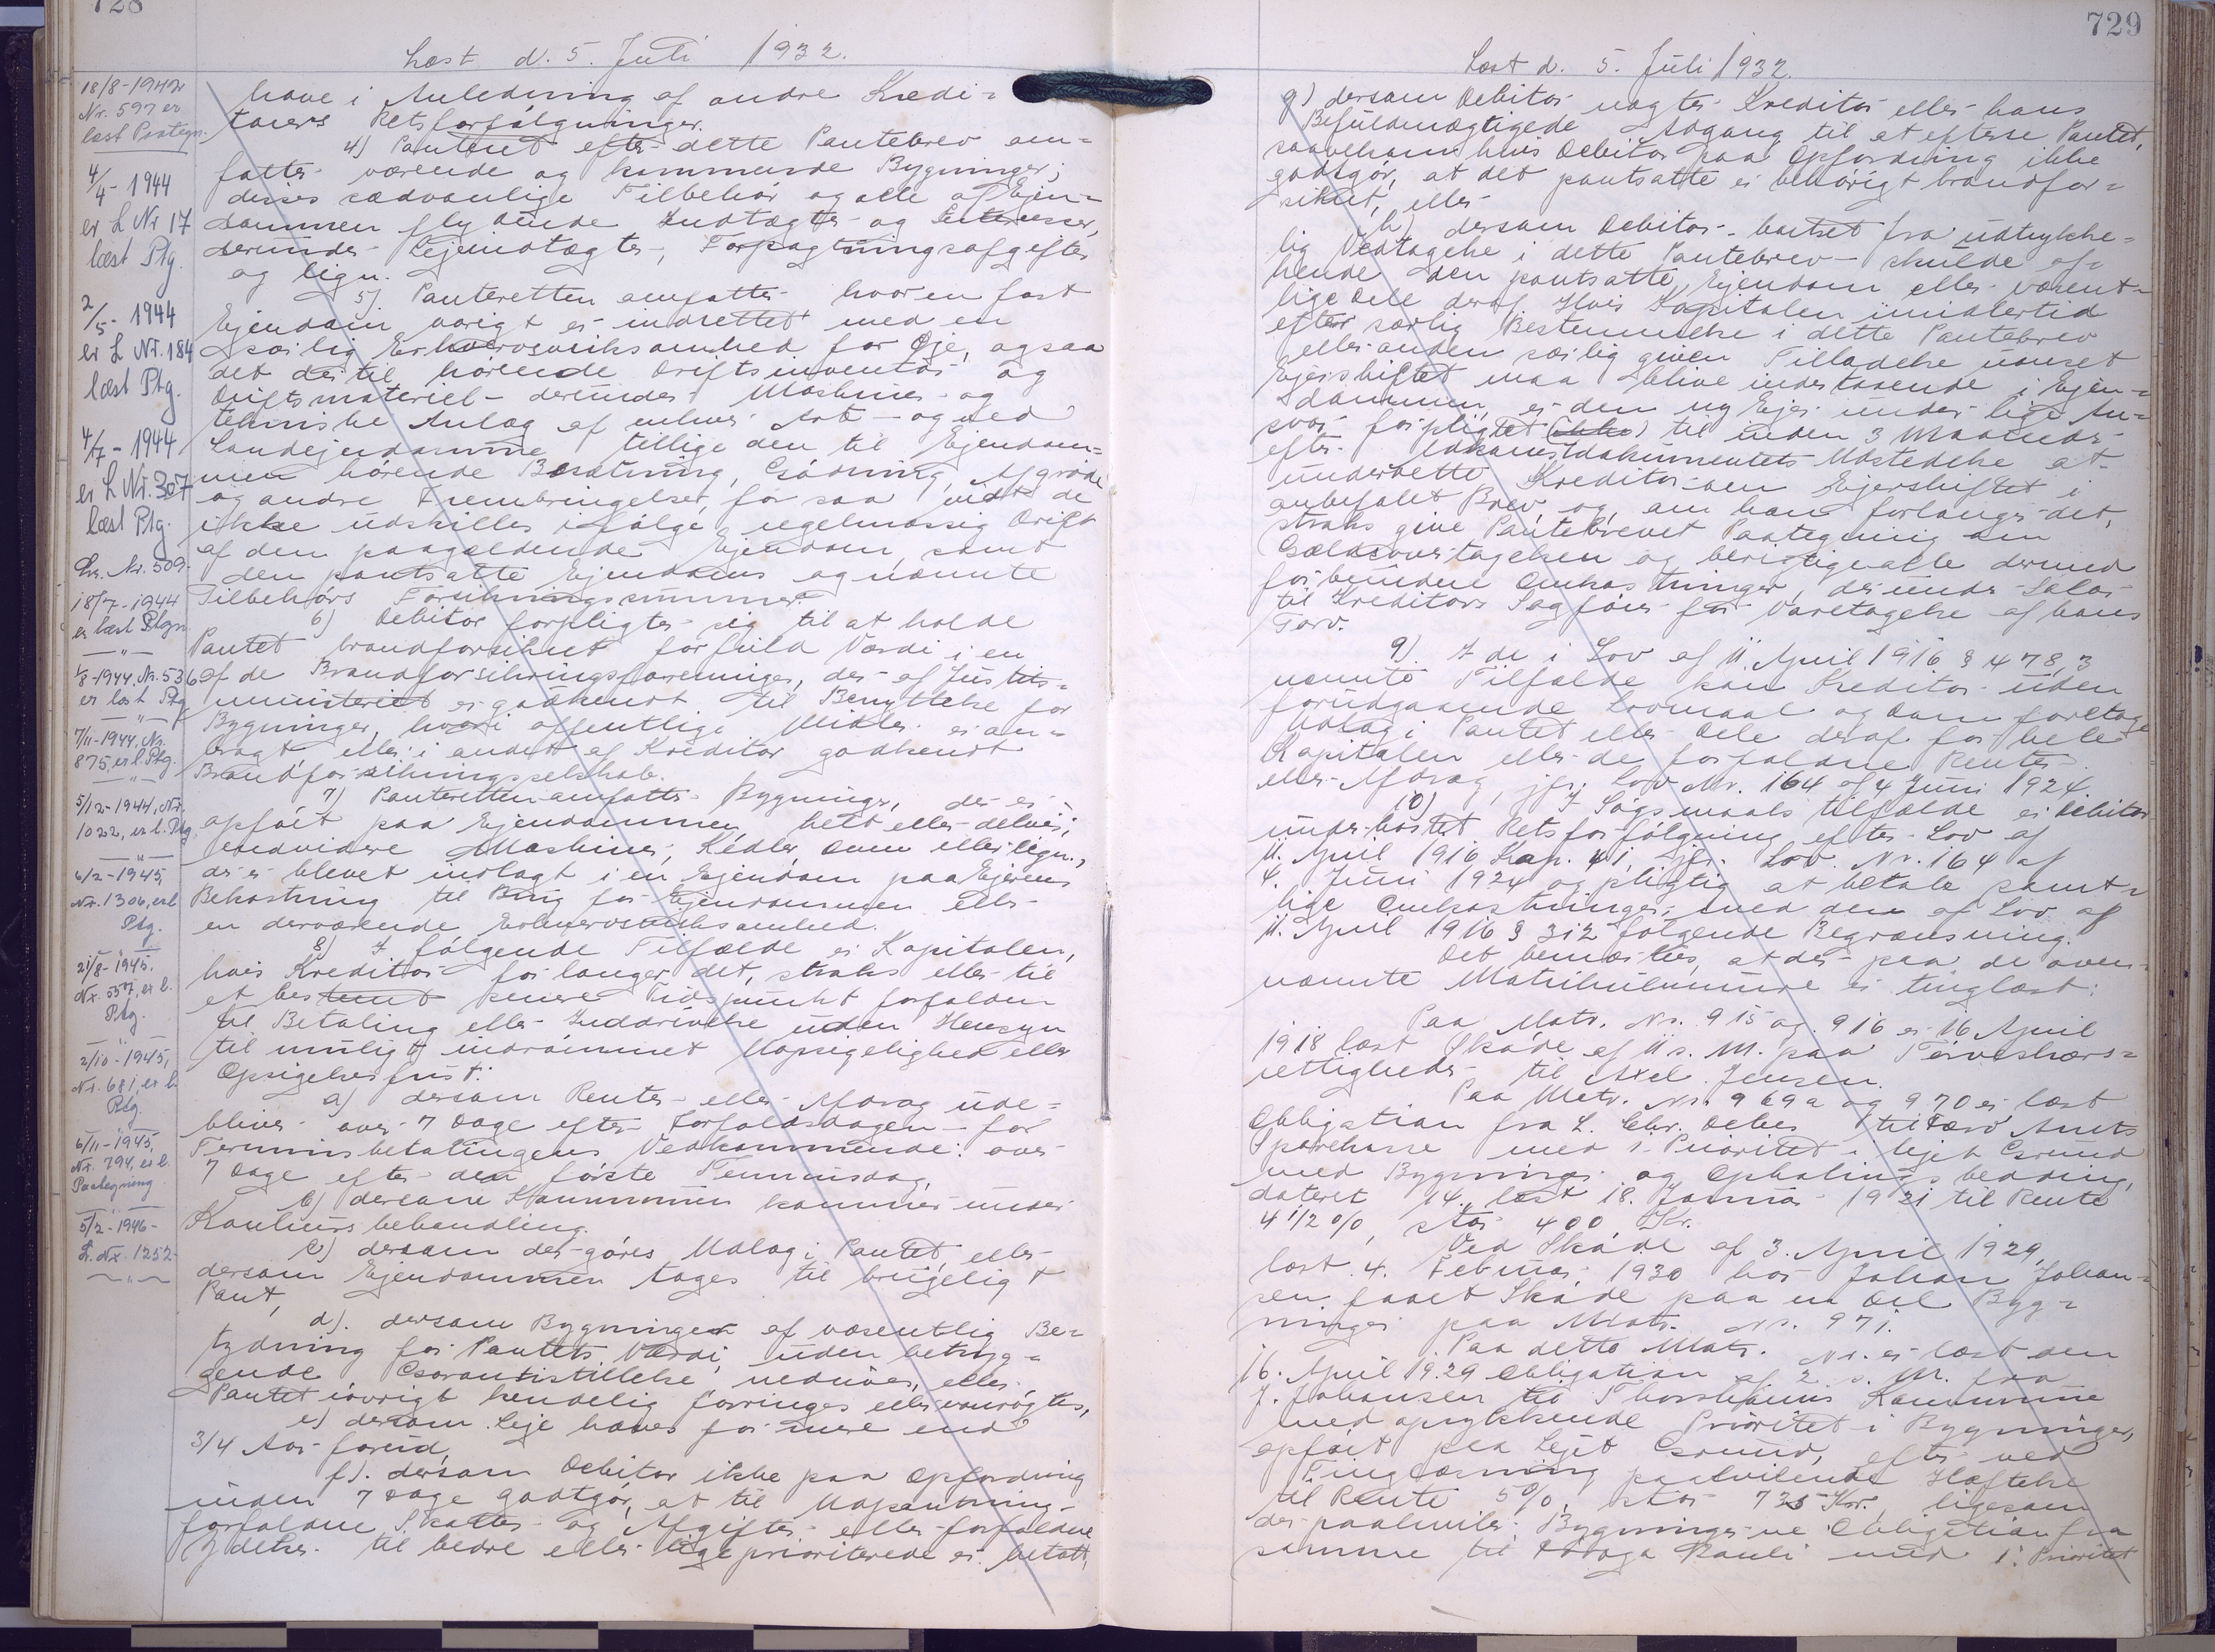 728
Læst d. 5. Juli 1932.
18/8-1942
Nr. 597 er
læst Paategn.
4/4-1944
er L Nr 17
læst Ptg.
2/5-1944
er L Nr. 184
læst Ptg.
4/7-1944
er L Nr. 307
læst Ptg.
Lb. Nr. 509.
18/7-1944
er læst Ptgn.
—"—
1/8-1944. Nr. 536
er læst Ptg.
—"—
7/11-1944, Nr.
875, er l. Ptg.
—"—
5/12-1944, Nr.
1022, er l. Ptg.
—"—
6/2-1945,
Nr. 1306, er l.
Ptg.
21/8-1945.
Nr. 557, er l.
Ptg.
2/10-1945,
Nr. 681, er l.
Ptg.
6/11-1945,
Nr. 794, er l.
Paategning
5/2-1946-
L. Nr. 1252-
—"—
have i Anledning af andre Kredi=
torers Retsforfølgninger.
4) Panteret efter dette Pantebrev om=
fatter værende og kommende Bygninger,
disses sædvanlige Tilbehør og alle af Ejen=
dommen flydende Indtægter og Interesser,
derunder Lejeindtægter, Forpagtningsafgifter
og lign.
5) Panteretten omfatter hvor en fast
Ejendom varigt er indrettet med en
særlig Erhvervsvirksomhed for Øje, ogsaa
det dertil hørende Driftsinventar og
Driftsmateriel - derunder Maskiner og
tekniske Anlæg af enhver Art - og ved
Landejendomme tillige den til Ejendom=
men hørende Besætning, Gødning, Afgrøde
og andre Frembringelser, for saa vidt de
ikke udskilles ifølge regelmæssig Drift
af den paagældende Ejendom, samt
den pantsatte Ejendoms og nævnte
Tilbehørs Forsikringssummer.
6) Debitor forpligter sig til at holde
Pantet brandforsikret for fuld Værdi i en
af de Brandforsikringsforeninger, der af Justits=
ministeriet er godkendt til Benyttelse for
Bygninger, hvori offentlige Midler er an=
bragt eller i andet af Kreditor godkendt
Brandforsikringsselskab.
7) Panteretten omfatter Bygninger, der er
opført paa Ejendommen helt eller delvis;
endvidere Maskiner, Kedler, Ovne eller lign.,
der er blevet indlagt i en Ejendom paa Ejerens
Bekostning til Brug for Ejendommen eller
en derværende Erhvervsvirksomhed.
8) I følgende Tilfælde er Kapitalen,
hvis Kreditor forlanger det, straks eller til
et bestemt senere Tidspunkt forfalden
til Betaling eller Inddrivelse uden Hensyn
til muligt indrømmet Uopsigelighed eller
Opsigelsesfrist:
a) dersom Renter eller Afdrag ude=
bliver over 7 Dage efter Forfaldsdagen - for
Terminsbetalingens Vedkommende: over
7 Dage efter den første Terminsdag,
b) dersom Kommunen kommer under
Konkursbehandling.
c) dersom der gøres Udlæg i Pantet, eller
dersom Ejendommen tages til brugeligt
Pant,
d). dersom Bygninger af væsentlig Be=
tydning for Pantets Værdi, uden betryg=
gende Garantistillelse nedrives, eller
Pantet iøvrigt kendelig forringes eller vanrøgtes,
e) dersom Leje hæves for mere end
3/4 Aar forud,
f). dersom Debitor ikke paa Opfordring
inden 7 Dage godtgør, at til Udpantning
forfaldne Skatter og Afgifter eller forfaldne
Ydelser til bedre eller lige prioriterede er betalt,
729
Læst d. 5. Juli 1932.
g) dersom Debitor nægter Kreditor eller hans
Befuldmægtigede Adgang til at efterse Pantet,
saavelsom hvis Debitor paa Opfordring ikke
godtgør, at det pantsatte er behørigt brandfor=
sikret, eller
h) dersom Debitor - bortset fra udtrykke=
lig Vedtagelse i dette Pantebrev - skulde af=
hænde den pantsatte Ejendom eller væsent=
lige Dele deraf. Hvis Kapitalen imidlertid
efter særlig Bestemmelse i dette Pantebrev
eller anden særlig given Tilladelse uanset
Ejerskiftet maa blive indestaaende i Ejen=
dommen, er den ny Ejer under lige An=
svar forpligtet (ikke) til inden 3 Maaneder
efter Adkomstdokumentets Udstedelse at
underrette Kreditor om Ejerskiftet i
anbefalet Brev, og, om han forlanger det,
straks give Pantebrevet Paategning om
Gældsovertagelsen og berigtige alle dermed
forbundne Omkostninger, derunder Salær
til Kreditors Sagfører for Varetagelse af hans
Tarv.
9) I de i Lov af 11. April 1916 § 478, 3
nævnte Tilfælde kan Kreditor uden
forudgaaende Lovmaal og Dom foretage
Udlæg i Pantet eller Dele deraf for hele
Kapitalen eller de forfaldne Renter
eller Afdrag, jfr. Lov Nr. 164 af 4 Juni 1924.
10) I Søgsmaals tilfælde er Debitor
underkastet Retsforfølgning efter Lov af
11. April 1916 Kap. 41, jfr. Lov. Nr. 164 af
4. Juni 1924 og pligtig at betale samt=
lige Omkostninger, med den af Lov af
11. April 1916 § 312 følgende Begrænsning.
Det bemærkes, at der paa de oven=
nævnte Matrikulnumre er tinglæst:
Paa Matr. Nr. 915 og 916 er 16 April
1918 læst Skøde af 11 s. M. paa Tørveskærs=
rettigheder til Axel Jensen.
Paa Matr. Nr. 969a og 970 er læst
Obligation fra L. Chr. Debes til Færø Amts
Sparekasse med 1. Prioritet i lejet Grund
med Bygninger og Ophalings bedding,
dateret 14., læst 18. Januar 1921 til Rente
4 1/2 %, stor 400 Kr.
Ved Skøde af 3. April 1929,
læst 4. Februar 1930 har Johan Johan=
sen faaet Skøde paa en Del Byg=
ninger paa Matr. Nr. 971.
Paa dette Matr. Nr. er læst den
16. April 1929 Obligation af 2. s. M. fra
J. Johansen til Thorshavns Kommune
med oprykkende Prioritet i Bygninger,
opført paa lejet Grund, efter ved
Tinglæsning paahvilende Hæftelse
til Rente 5%, stor 725 Kr., ligesom
der paahviler Bygningerne Obligation fra
samme til Poul med 1. Prioritet